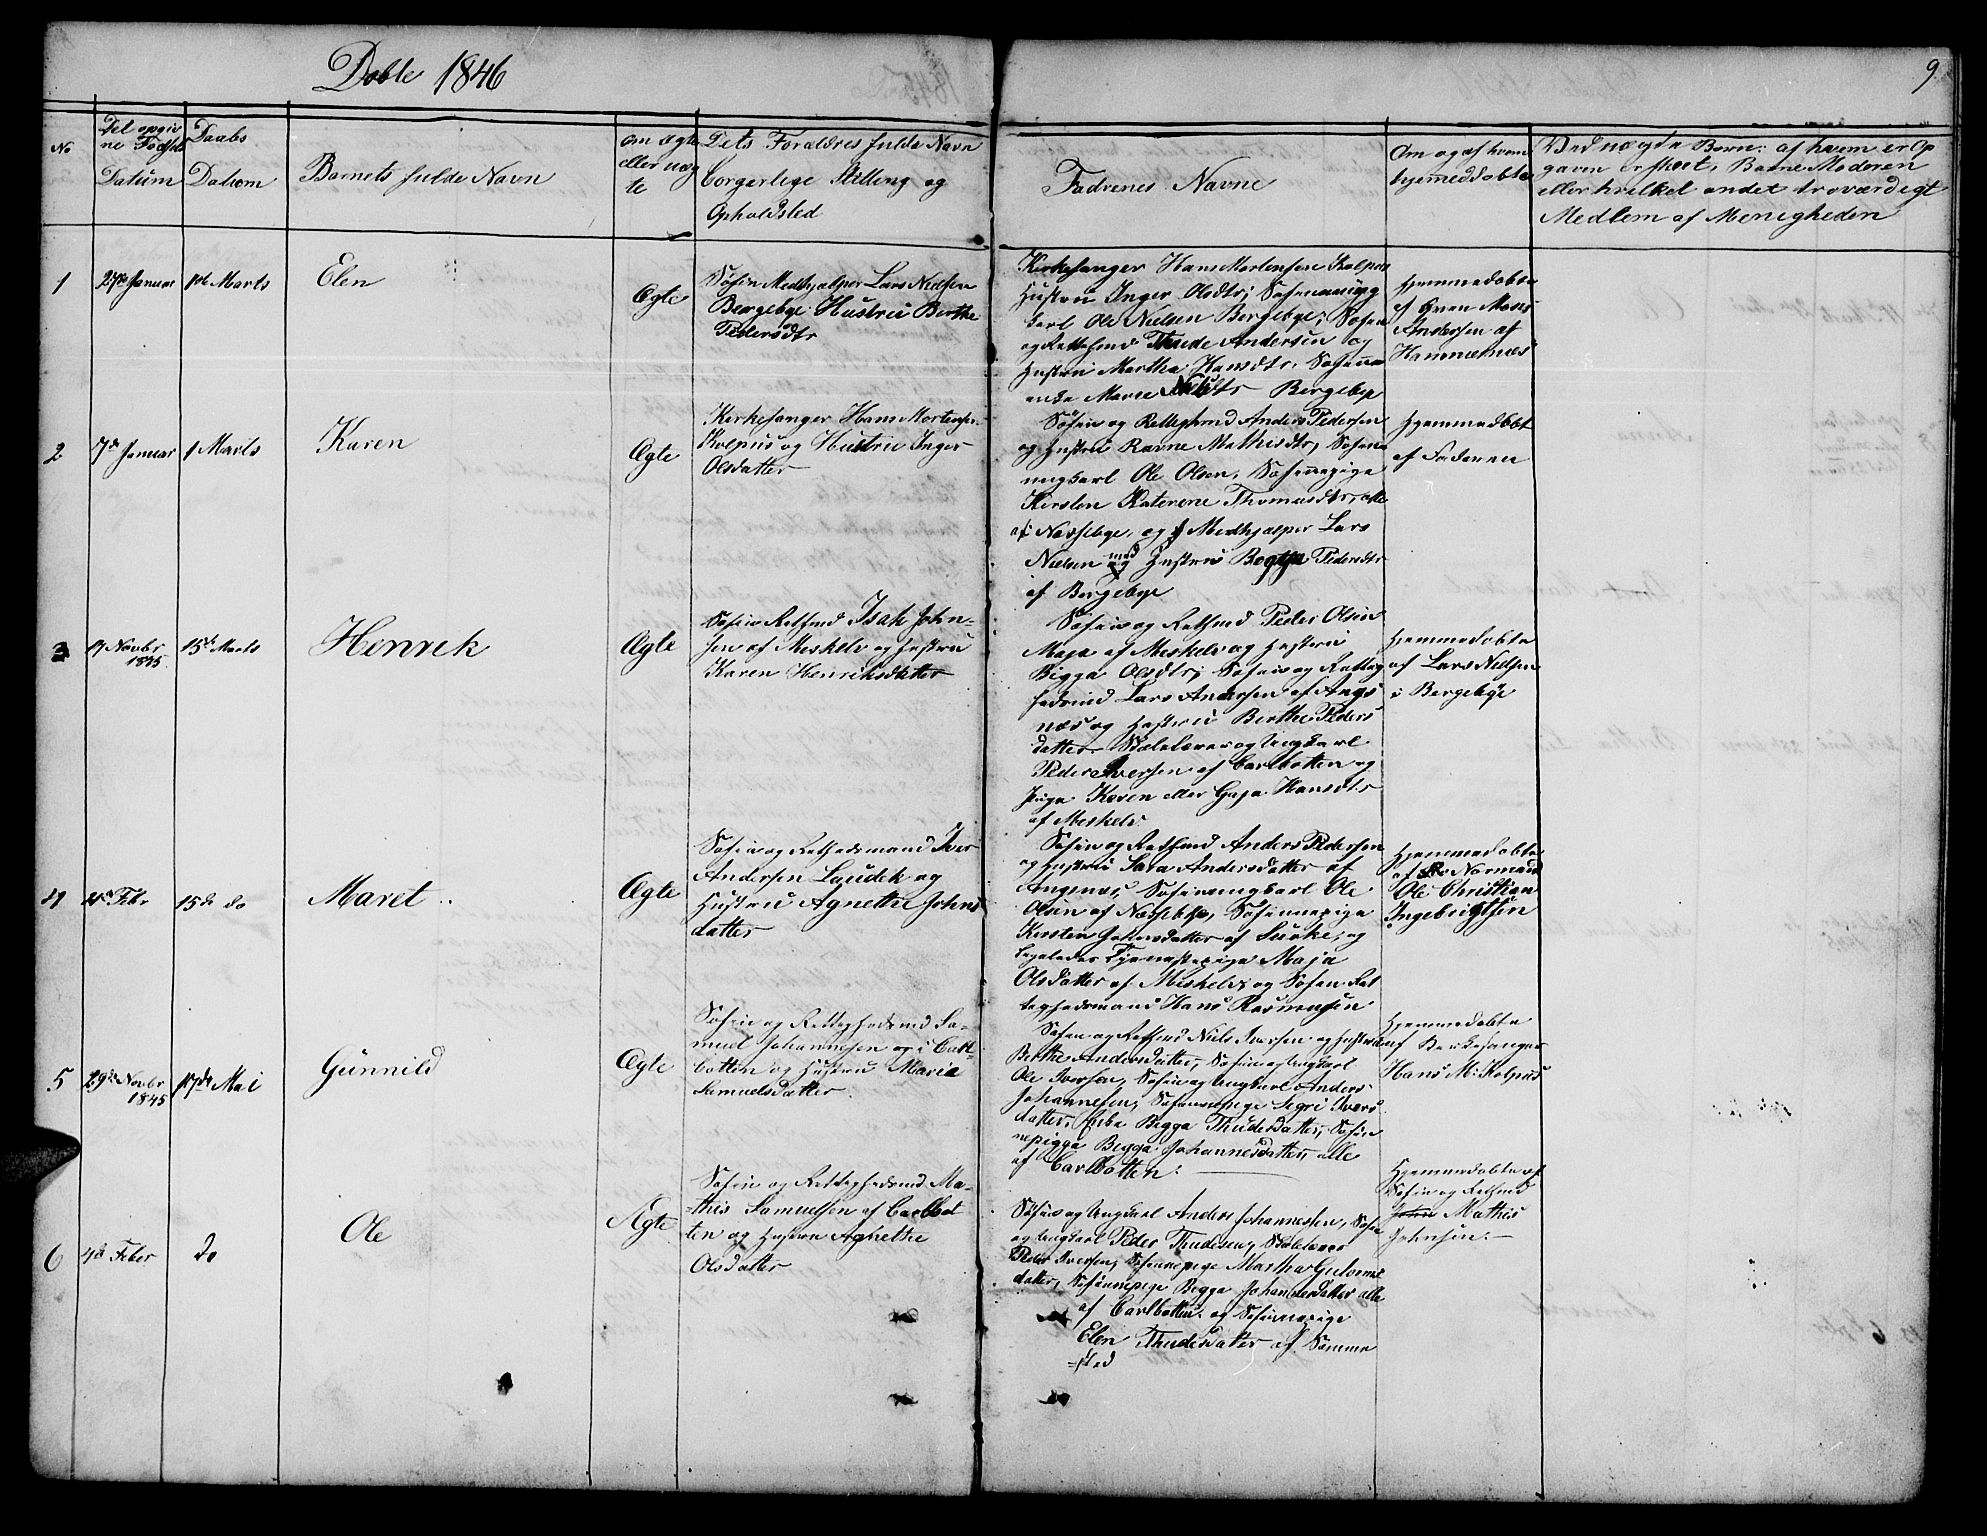 Döbte 1846
9.
No
Det opgiv
ne Födsels
Datum
Daabs
Datum
Barnets fulde Navn
om ægte
eller uæg
te
Dets Forældres fulde Navn
borgerlige Stilling og
Opholdsted
Fadrenes Navne
Om og af hvem
hjemmedöbte
Ved uægte Börn: af hvem er Op
gaven er skeet, Barne Moderen
eller hvilket andet troværdigt
Medlem af Menigheden
1
27de Januar
1ste Marts
Elen
Ægte
Söfin Medhjelper Lars Nielsen
Bergebye Hustru Berthe
Pedersdtr
Kirkesanger Hans Mortensen Kolpus
Hustru Inger Olsdtr; Söfinnung
karl Ole Nielsen Bergebye; Söfin
og Rettefmd Thude Andersen og
Hustru Martha Hansdtr, Söfinne
enke Marie Nielsdtr Bergebye
Hjemmedöbte
af Qvæn Mons
Andersen af
Hammernæs
2
7de Januar
1 Marts
Karen
Ægte
Kirkesanger Hans Mortensen
Kolpus og Hustru Inger
Olsdatter
Söfin og Rettighmd Anders Pedersen
og Hustru Ravne Mathisdtr, Söfin
ungkarl Ole Olsen, Söfinnepige
Kirsten Katerene Thomasdtr, alle
af Næssebye, og Medhjælper Lars
Nielsen med Hustru Begga Pedersdtr
af Bergebye
Hjemmedöbt
af Faderen
3
19 Novbr
1845
15de Marts
Henrik
Ægte
Söfin Retfmd Isak John-
sen af Meskelv og Hustru
Karen Henriksdatter
Söfin og Retfmd Peder Olsen
Maja af Meskelv og Hustru
Bigga Olsdtr; Söfin og Rettig
hedsmd Lars Andersen af Angs
næs og Hustru Berthe Peders
datter Skolelærer og Ungkarl
Peder Iversen af Carlbotten og
Pige Karen eller Gaja Hansdtr
af Meskelv
Hjemmedöbte
af Lars Nielsen
i Bergebye
4
Febr
15de do
Maret
Ægte
Söfin og Rethedsmand Iver
Andersen Laudek og
Hustru Agnethe Johns
datter
Söfin og Retfmd Anders Pedersen
og Hustru Sara Andersdatter af
Angsnæs, Söfinungkarl Ole
Olsen af Næssebye, Söfinnepige
Kirsten Johansdatter af Suoke, og
Ligeledes Tjenestepige Maja
Olsdatter af Meskelv og Söfin Ret
tighedsmand Hans Rasmussen
Hjemmedöbte
af Normand
Ole Christian
Ingebrigtsen
5
29de Novbr
1845
17de Mai
Gunnild
Ægte
Söfin og Rettighedsmd Sa-
muel Johannesen og i Carl-
botten og Hustru Marie
Samuelsdatter.
Söfin og Retfmd Niels Iversen og Hustru
Berthe Andersdatter, Söfin og Ungkarl
Ole Iversen, Söfin og Ungkarl Anders
Johannesen, Söfinnepige Segri Ivers
datter, Enke Begga Thudesdatter, Söfin
nepigga Begga Johannesdatter, alle
af Carlbotten.
Hjemmedöbte
af Kirkesanger
Hans M: Kolpus
6
4de Feber
do
Ole
Ægte
Söfin og Rettighedsmd Ma-
this Samuelsen af Carlbot
ten og Hustru Agnethe
Olsdatter
Söfin og Ungkarl Anders Johannesen, Söfin
og Ungkarl Peder Thudesen, Skolelærer
Peder Iversen, Söfinnepige Martha
datter, Söfinnepige Begga Johannesdatter alle
af Carlbotten og Söfinnepige
Elen Thudesdatter af Somme
sted
Hjemmedöbte af
Söfin og Retfmd
John Mathis
Johnsen.